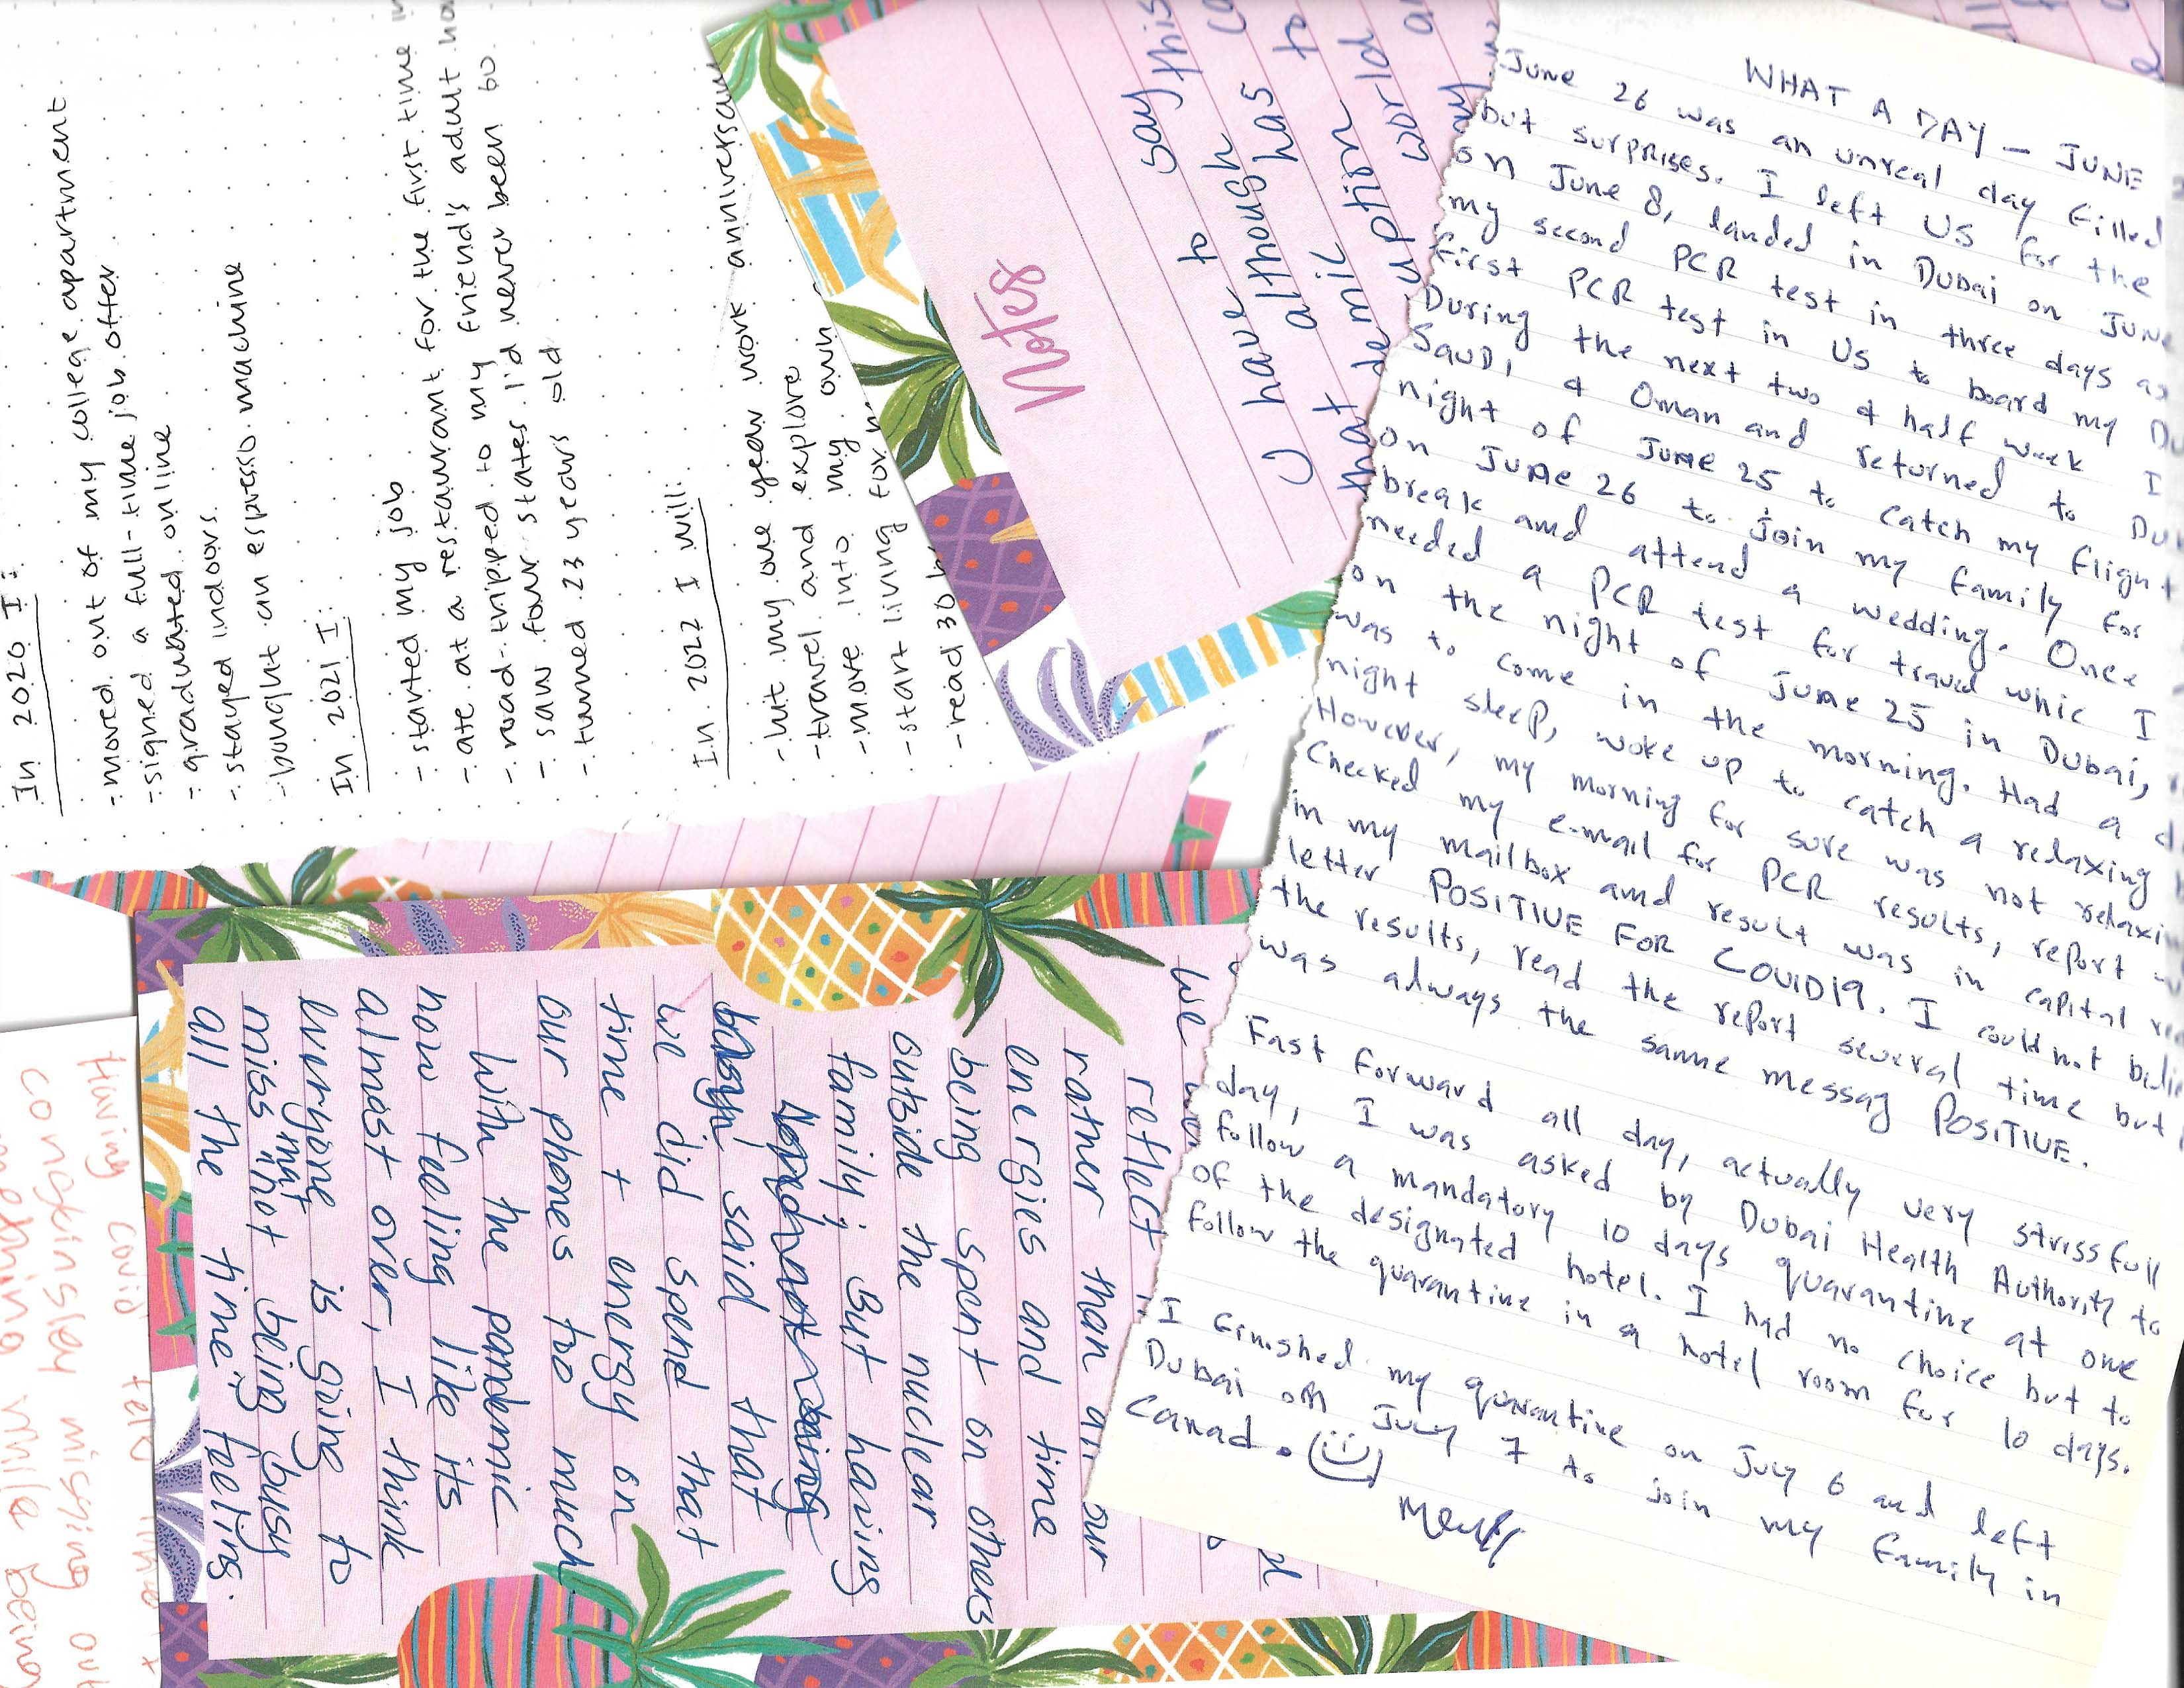 In 2020 I:
- moved out of my college apartment.
- signed a full-time job offer
- graduated online
- stayed indoors
- bought an espresso machine
In 2021 I:
- started my job
- ate at a restaurant for the first time in
- road-tripped to my friend's adult
- saw four states I'd never been to
- turned 23 years old
In 2022 I will:
- hit my one year work anniversary
- travel and explore
- move into my own
- start living for
- read 30
Notes
say this
have to
U although has to
that demic
uption
world
WHAT A DAY - JUNE
June 26 was an unreal day filled
but surprises. I left US for the
on June 8, landed in Dubai on June
my second PCR test in three days as
first PCR test in US to board my
During the next two & half week I
Saudi & Oman and returned to Du
night of June 25 to catch my flight
on June 26 to join my family for
break and attend a wedding. Once
needed a PCR test for travel whic I
on the night of June 25 in Dubai,
was to come in the morning. Had a
night sleep, woke up to catch a relaxing
However, my morning for sure was not relaxi
Checked my e-mail for PCR results, report
in my mailbox and result was in capital re
letter POSITIVE FOR COVID19. I could not belie
the results, read the report several time but
was always the same messag POSITIVE.
Fast forward all day, actually very stressfull
day, I was asked by Dubai Health Authority to
follow a mandatory 10 days quarantine at one
of the designated hotel. I had no choice but to
follow the quarantine in a hotel room for 10 days.
I finished my quarantine on July 6 and left
Dubai on July 7 to join my family in
Canad.
we
reflect
rather than all our
energies and time
being spent on others
outside the nuclear
family. But having
said that
we did spend that
time + energy on
our phones too much
With the pandemic
now feeling like its
almost over, I think
everyone is going to
miss that "not being busy
all the time" feeling.
covid
missing out
while being